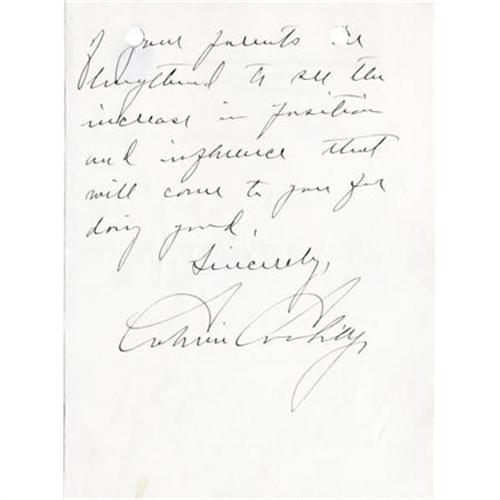 of your parents be
lengthened to see the
increase in position
and influence that
will come to you for
doing good.
Sincerely,